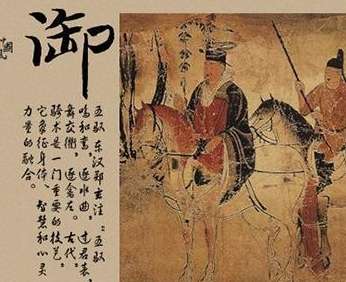 御
中國風
五驭 东汉郑玄注:五驭
鸣和鸾,逐水曲,过君表,
舞交衢,逐禽左。古代,
骑术是一门重要的技艺,
它象征身体、智慧和心灵
力量的融合。